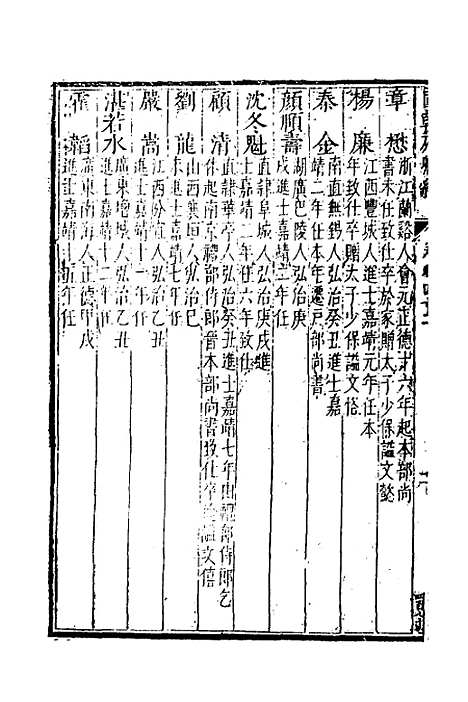 章懋
浙江蘭谿人會元正德十六年起本部尚
書未任致仕卒於家贈太子少保謚文懿
楊廉
江西豐城人進士嘉靖元年任本
年致仕卒贈太子少保謚文恪
秦金
南直無錫人弘治癸丑進士嘉
靖二年任本年遷戶部尚書
顏頤壽
湖廣巴陵人弘治庚
戌進士嘉靖二年任
沈冬魁
直隸阜城人弘治庚戌進
士嘉靖二年任六年致仕
顧清
直隸華亭人弘治癸丑進士嘉靖七年由禮部侍郎乞
休起南京禮部侍郎晉本部尚書致仕卒謚文僖
劉龍
山西襄垣人弘治己
未進士嘉靖七年任
嚴嵩
江西分宜人弘治乙丑
進士嘉靖十一年任
湛若水
廣東增城人弘治乙丑
進士嘉靖十二年任
霍韜
廣東南海人正德甲戌
進士嘉靖十五年任